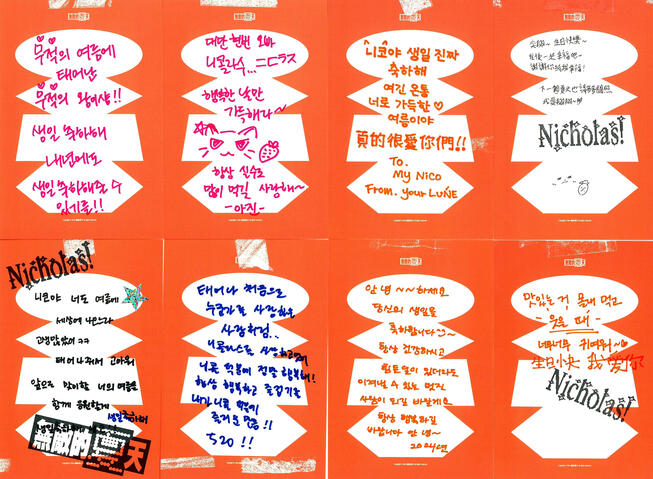 무적의 여름에
태어난
무적의 왕이상!!
생일 축하해
내년에도
생일 축하해줄 수
있기를!!
대만 현빈 오빠
니콜라스... ニコラス
행복한 날만
가득해라~
항상 실수로
많이 먹길 사랑해~
-아진-
니코야 생일 진짜
축하해
여긴 온통
너로 가득한
여름이야
真的很愛你們!!
To.
My Nico
From. your LUNE
生日快樂~
Nicholas!
Nicholas!
니코야 너도 여름에
세상에 나오느라
고생많았어 ㅋㅋ
태어나줘서 고마워
앞으로 맞이할 너의 여름을
함께 응원할게
생일축하해
無敵的夏天
태어나 처음으로
누군가를 사랑하는
사랑처럼..
니콜라스를 사랑하고있어
니콜 덕분에 정말 행복해!
항상 행복하고 즐겁기를
내가 니콜 덕분에
즐거운 만큼!!
520!!
안녕~~하세요
당신의 생일을
축하합니다
항상 건강하시고
힘든일이 있더라도
이겨낼 수 있는 멋진
사람이 되길 바랄게요
항상 행복하길
바랍니다 안녕~
2024년
맛있는 거 몰래 먹고
웃을 때
너무너무 귀여워
生日快 我愛你
Nicholas!